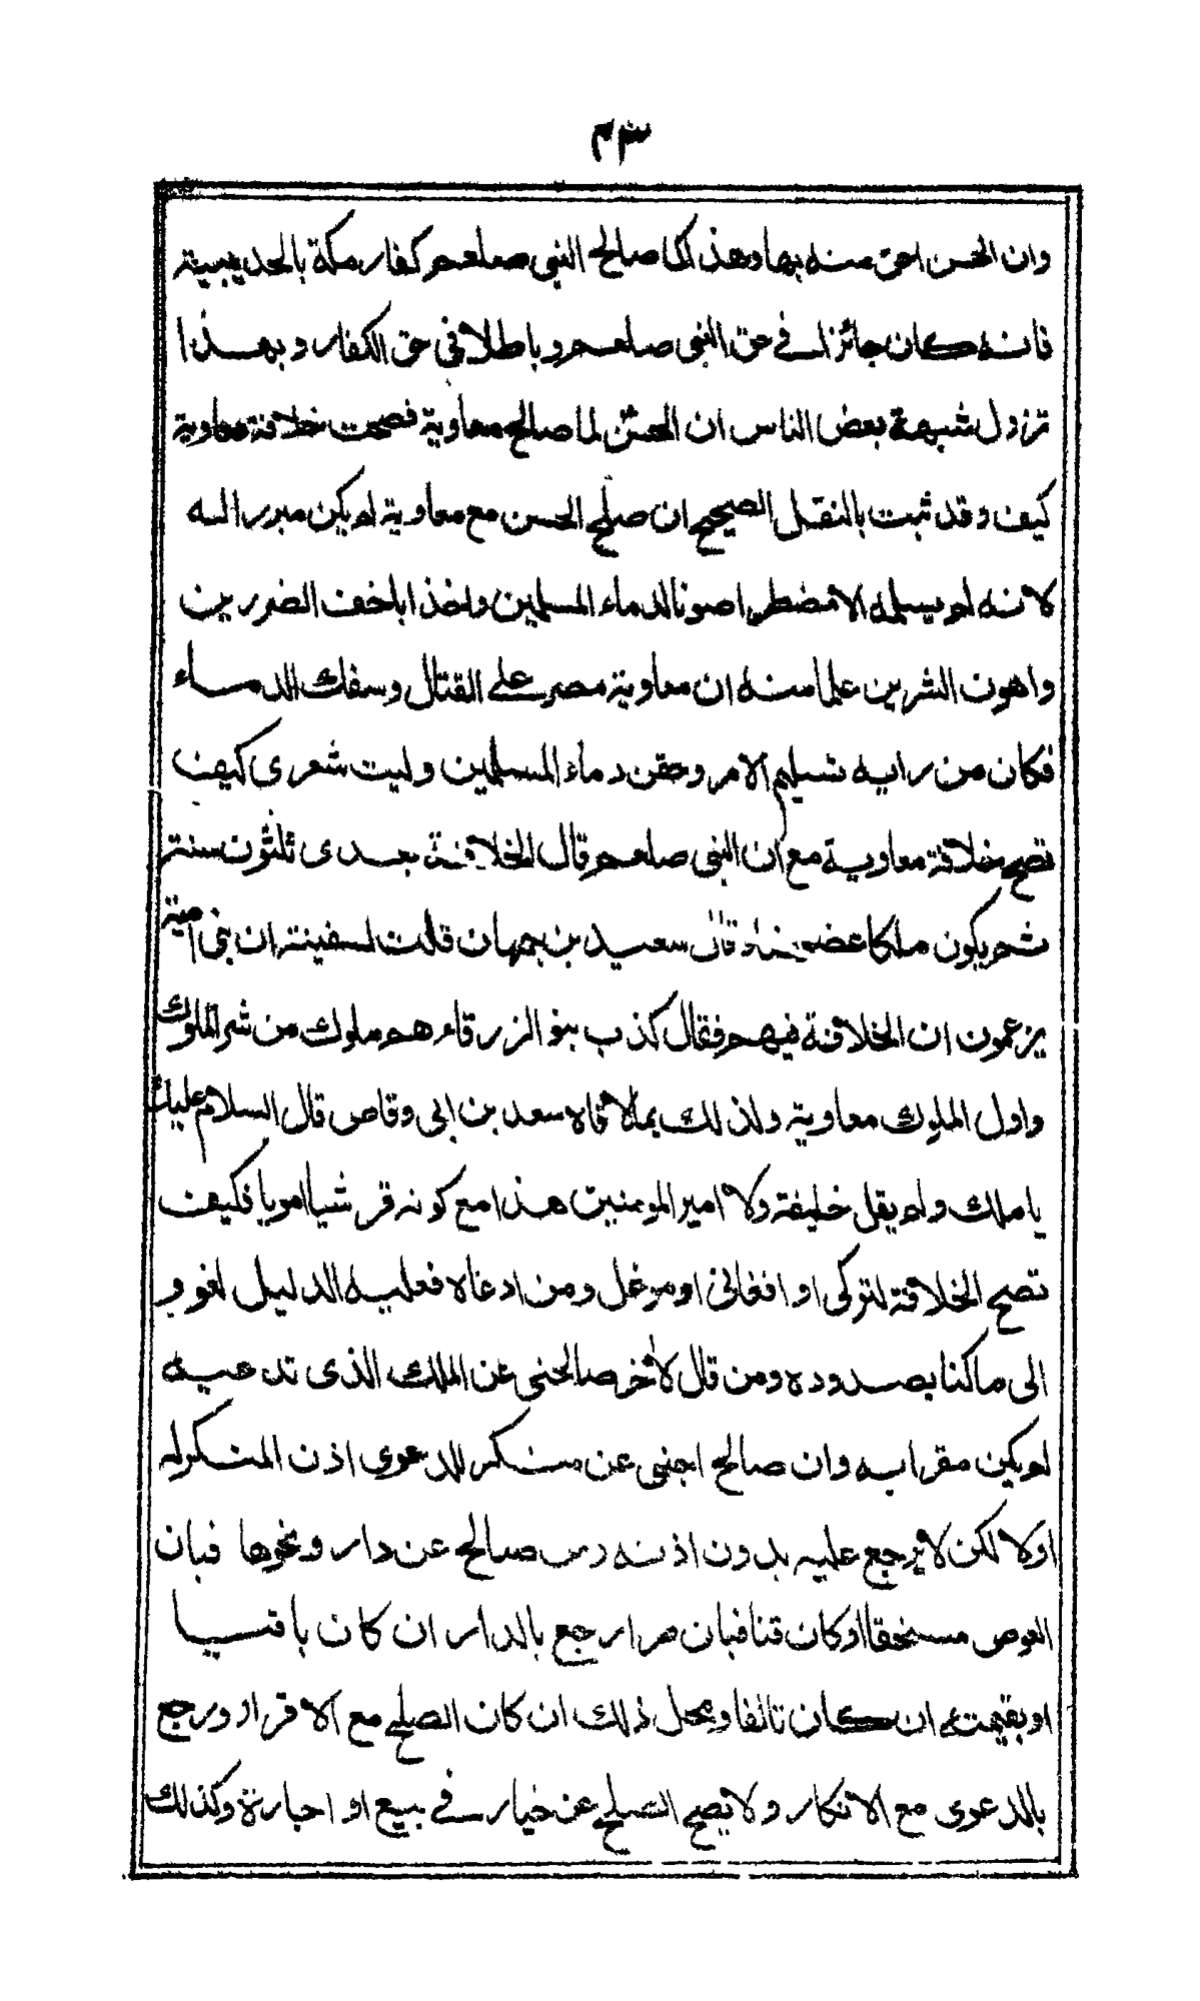 ٤٣
وان الحسن احق منه بها وهذا كما صالح النبى صلعم كفار مكة بالحديبية
فانه كان جائزا فى حق النبى صلعم وباطلا فى حق الكفار وبهذا
تزول شبهة بعض الناس ان الحسن لما صالح معاوية فصحت خلافة معاوية
كيف وقد ثبت بالنقل الصحيح ان صلح الحسن مع معاوية لم يكن مبررا له
لانه لم يسلمه الا مضطرا صونا لدماء المسلمين واخذا باخف الضررين
واهون الشرين علما منه ان معاوية مصر على القتال وسفك الدماء
فكان من رايه تسليم الامر وحقن دماء المسلمين وليت شعرى كيف
تصح خلافة معاوية مع ان النبى صلعم قال الخلافة بعدى ثلثون سنة
ثم يكون ملكا عضوضا وقال سعيد بن جمهان قلت لسفينة ان بنى امية
يزعمون ان الخلافة فيهم فقال كذب بنو الزرقاء هم ملوك من شر الملوك
واول الملوك معاوية ولذلك لما لاقاه سعد بن ابى وقاص قال السلام عليك
يا ملك ولم يقل خليفة ولا امير المومنين هذا مع كونه قرشيا امويا فكيف
تصح الخلافة لتركى او افغانى او مغل ومن ادعاه فعليه الدليل لغوو
الى ما كنا بصدوده ومن قال لاخر صالحنى عن الملك الذى تدعيه
لم يكن مقرا به وان صالح اجنبى عن منكر للدعوى اذن المنكر له
اولا لكن لا يرجع عليه بدون اذنه ومن صالح عن دار ونحوها فبان
العوض مستحقا او كان قنا فبان حرا رجع بالدار ان كان باقيا
او بقيمته ان كان تالفا ومحل ذلك ان كان الصلح مع الاقرار ورجع
بالدعوى مع الانكار ولا يصح الصلح عن خيار فى بيع او اجارة وكذلك